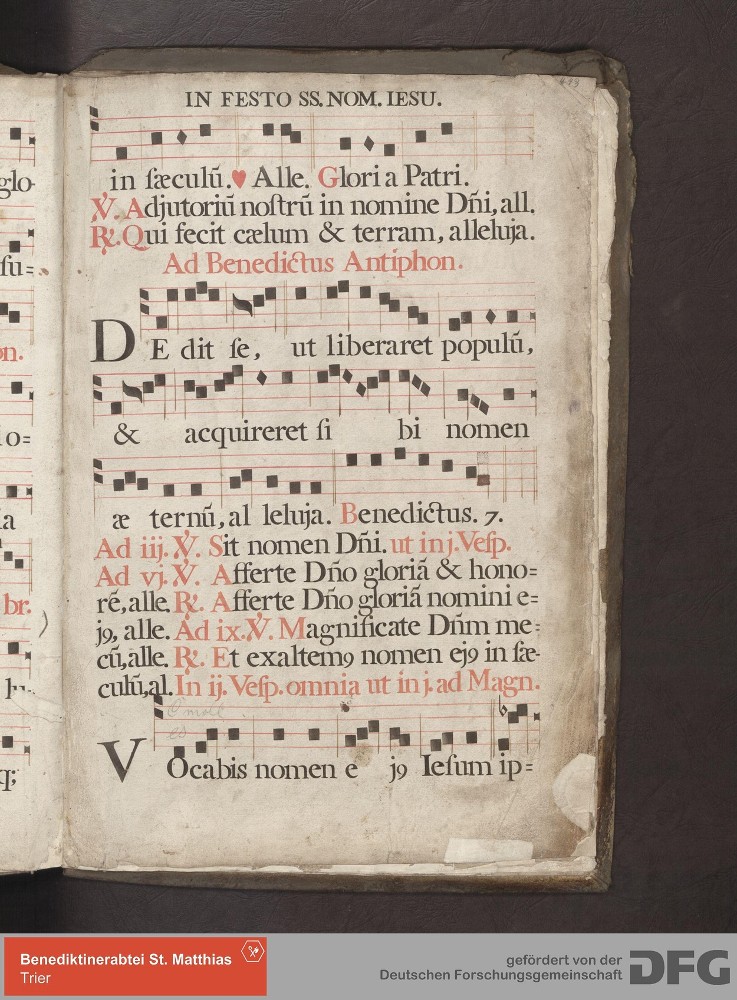 IN FESTO SS. NOM. IESU.
in sæculũ. ♥ Alle. Gloria Patri.
℣. Adjutoriũ nostrũ in nomine Dñi, all.
℟. Qui fecit cælum & terram, alleluja.
Ad Benedictus Antiphon.
DE dit se, ut liberaret populũ,
& acquireret si bi nomen
æ ternũ, al leluja. Benedictus. 7.
Ad iij. ℣. Sit nomen Dñi. ut in j. Vesp.
Ad vj. ℣. Afferte Dño gloriã & hono=
rẽ, alle. ℟. Afferte Dño gloriã nomini e=
j9, alle. Ad ix. ℣. Magnificate Dñm me=
cũ, alle. ℟. Et exaltem9 nomen ej9 in sæ-
culũ, al. In ij. Vesp. omnia ut in j. ad Magn.
VOcabis nomen e j9 Iesum ip=
glo-
su=
on.
io=
ia
br.
lu-
q;
Benediktinerabtei St. Matthias
Trier
gefördert von der
Deutschen Forschungsgemeinschaft
DFG